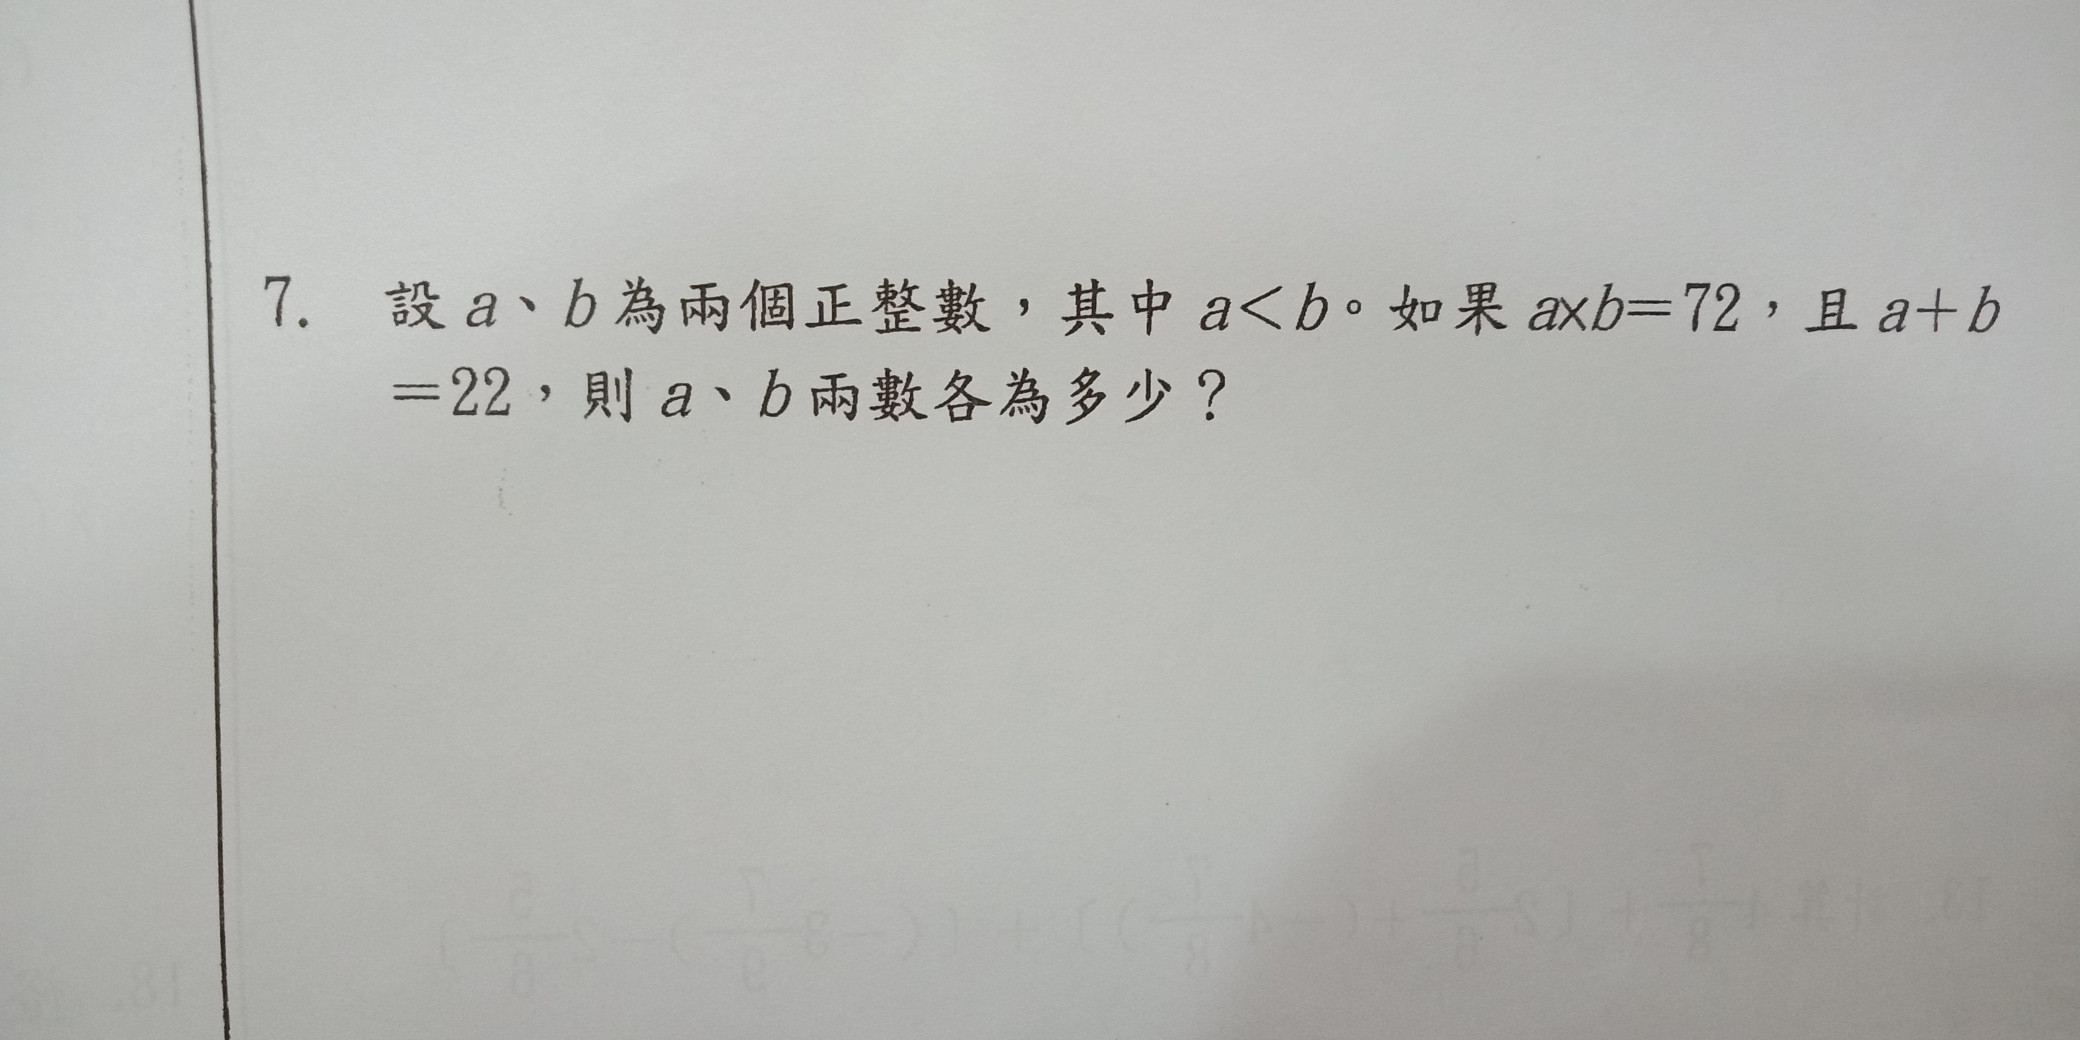 7. 設 a、b 為兩個正整數，其中 a＜b。如果 a×b＝72，且 a＋b
＝22，則 a、b 兩數各為多少？